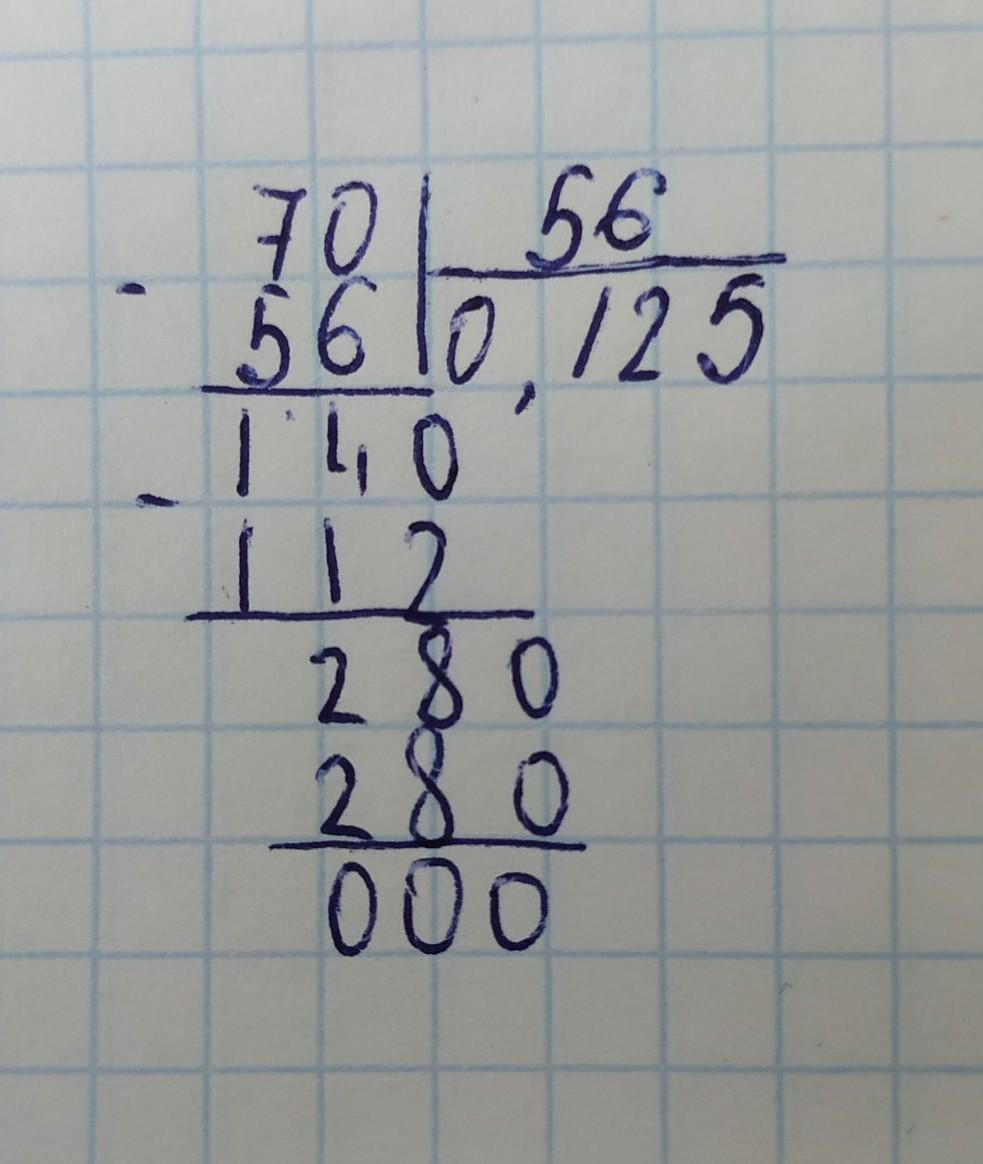 70 56
- 56 0,125
140
- 112
280
280
000